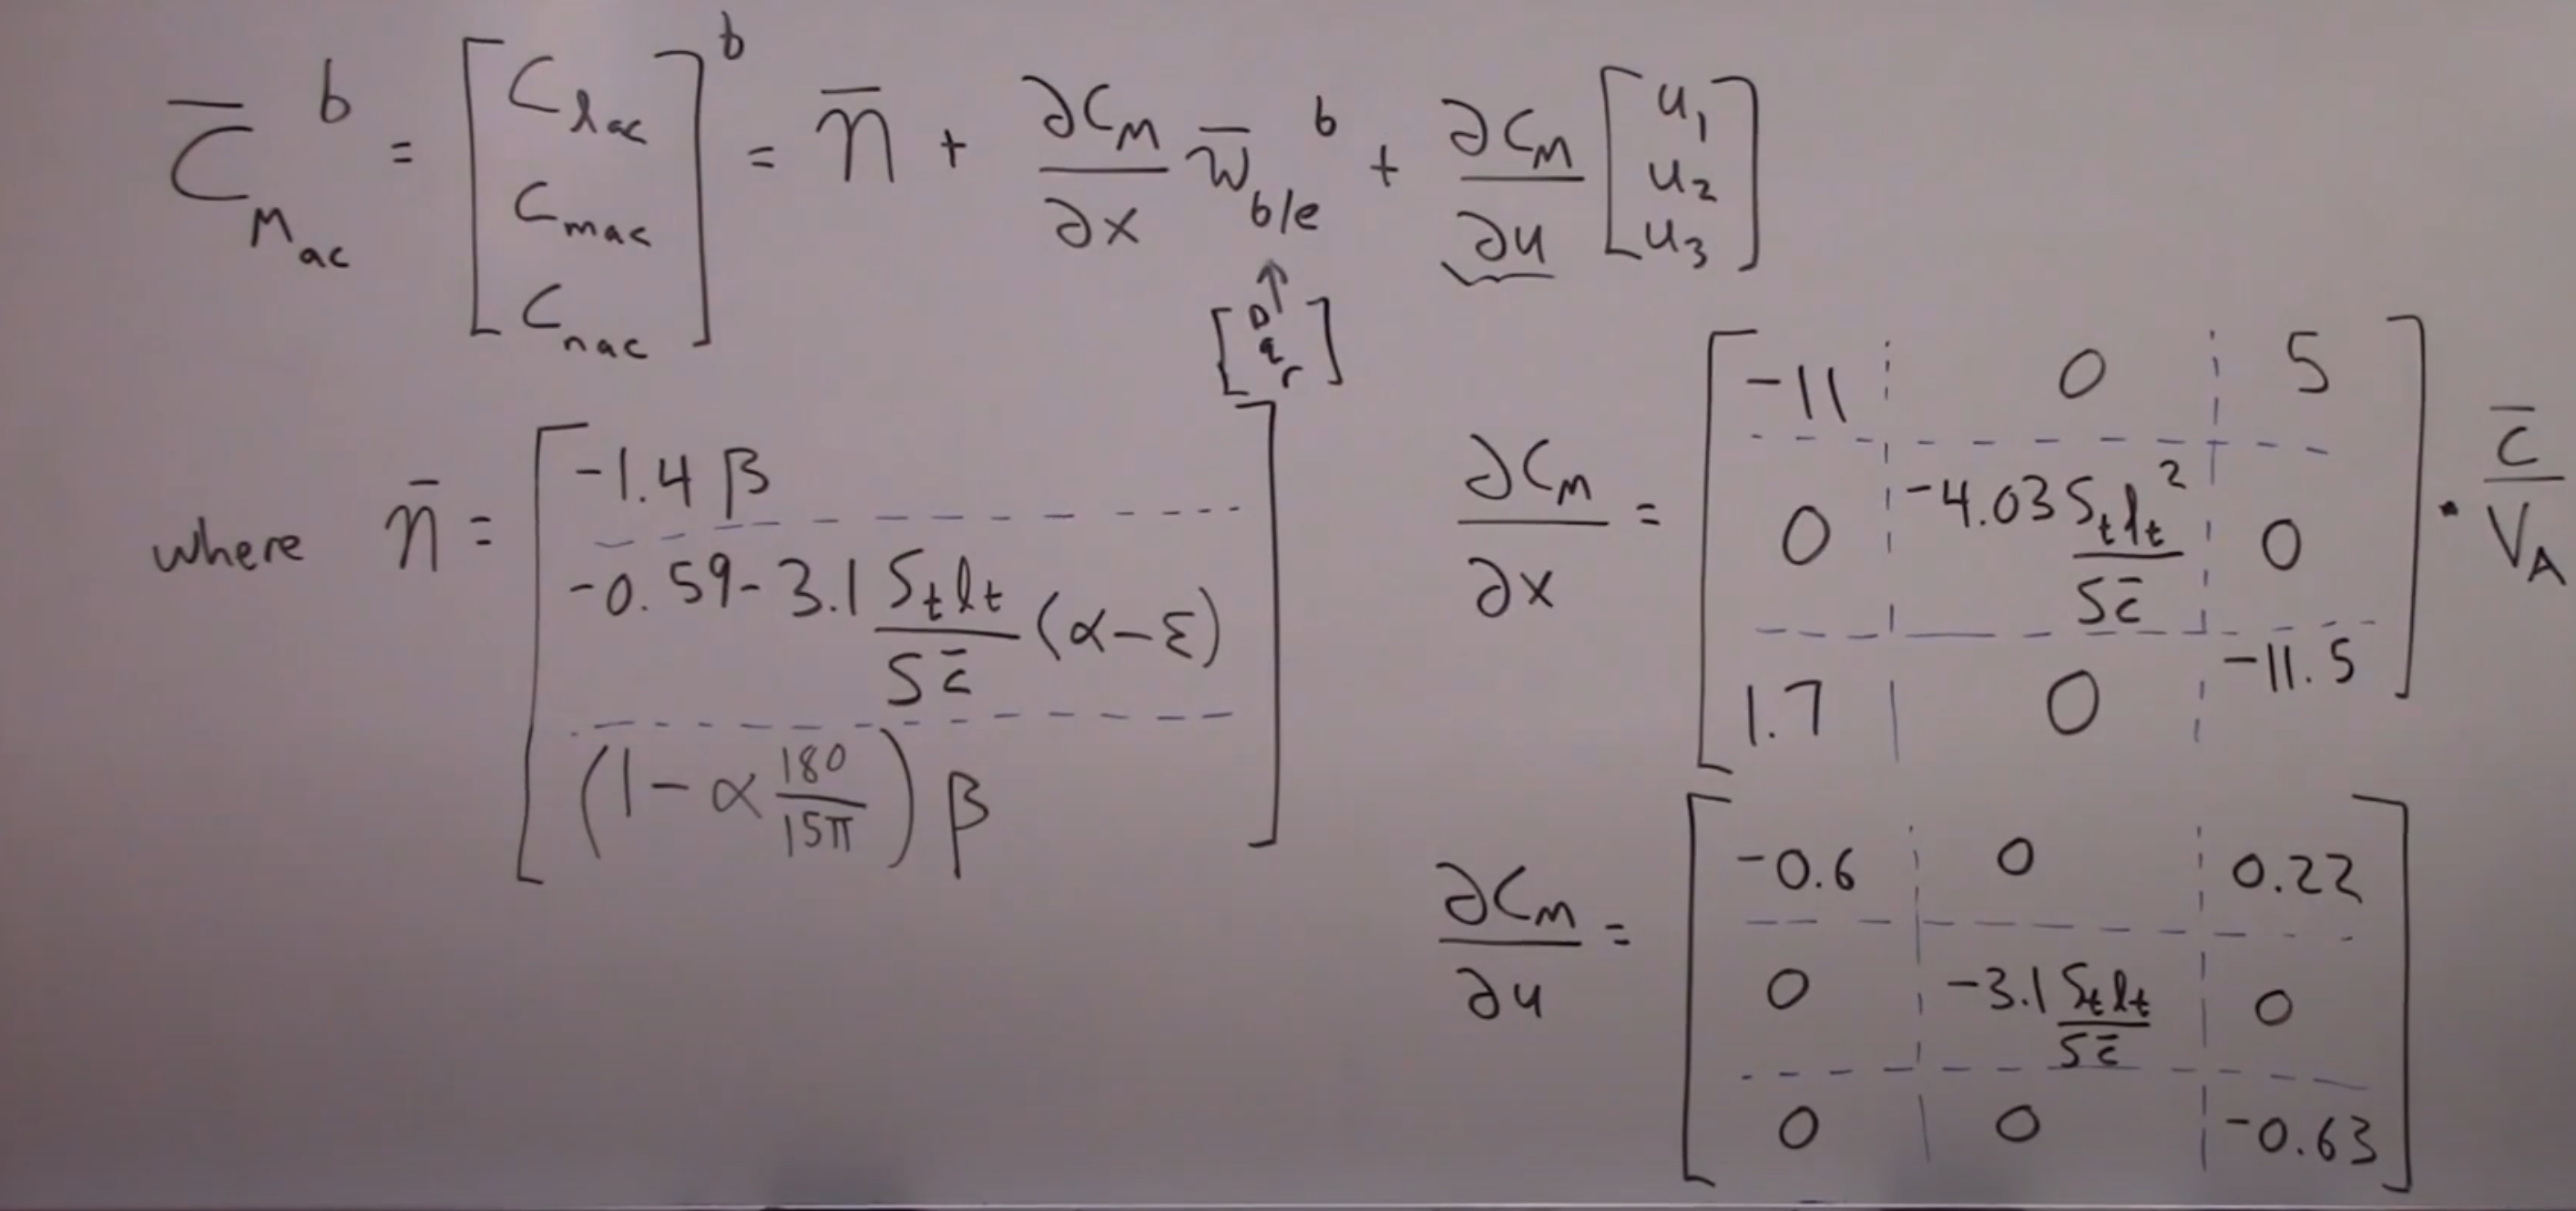 C̄_{M_{ac}}^b = [C_{l ac} ; C_{m ac} ; C_{n ac}]^b = n̄ + ∂C_M/∂x w̄_{b/e}^b + ∂C_M/∂u [u_1 ; u_2 ; u_3]
↑
[p ; q ; r]
where n̄ = [-1.4 β ; -0.59 - 3.1 S_t l_t / S c̄ (α - ε) ; (1 - α 180/15π) β]
∂C_M/∂x = [-11 0 5 ; 0 -4.03 S_t l_t^2 / S c̄ 0 ; 1.7 0 -11.5] · c̄/V_A
∂C_M/∂u = [-0.6 0 0.22 ; 0 -3.1 S_t l_t / S c̄ 0 ; 0 0 -0.63]